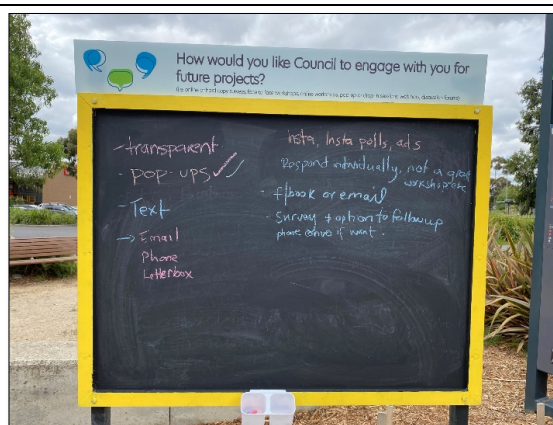 How would you like Council to engage with you for
future projects?
- transparent
- pop-ups
- Text
→ Email
Phone
Letterbox
insta, Insta polls, ads
Respond individually, not a great
workshopper
- f/book or email
- Survey + option to follow up
phone if want.